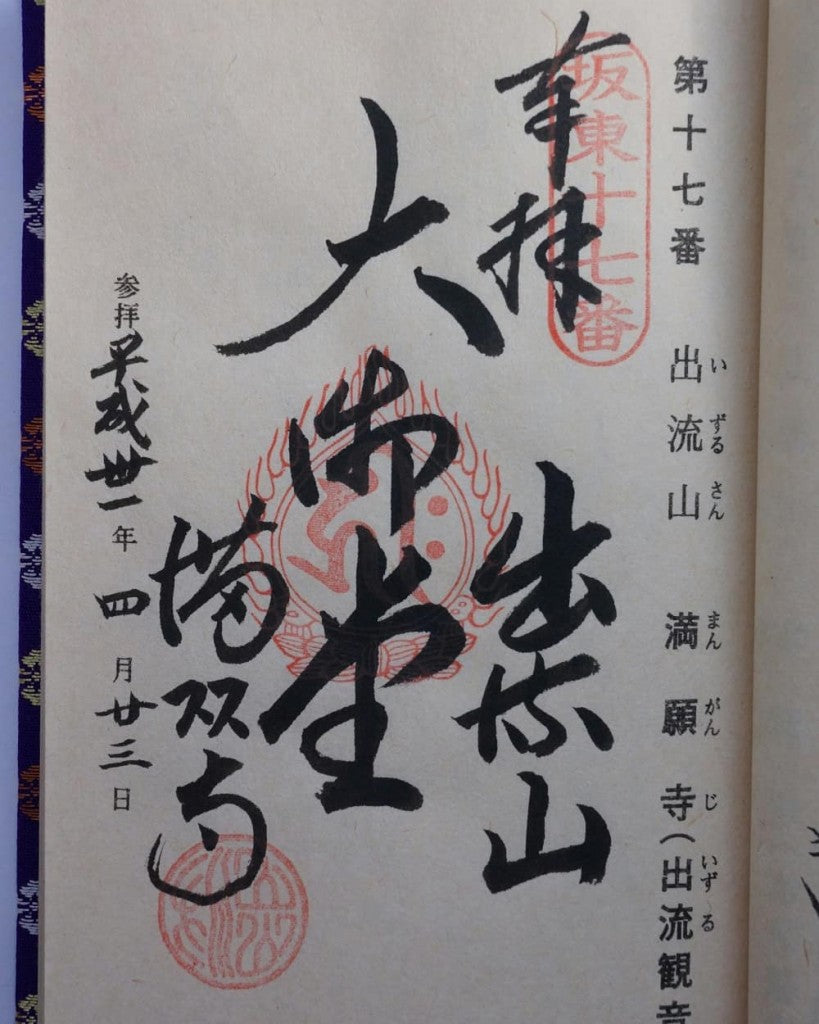 いずるさん まんがんじ いずる
第十七番 出流山 満願寺(出流観音
坂東十七番
奉拝
出流山
大御堂
満願寺
参拝平成卅一年四月廿三日